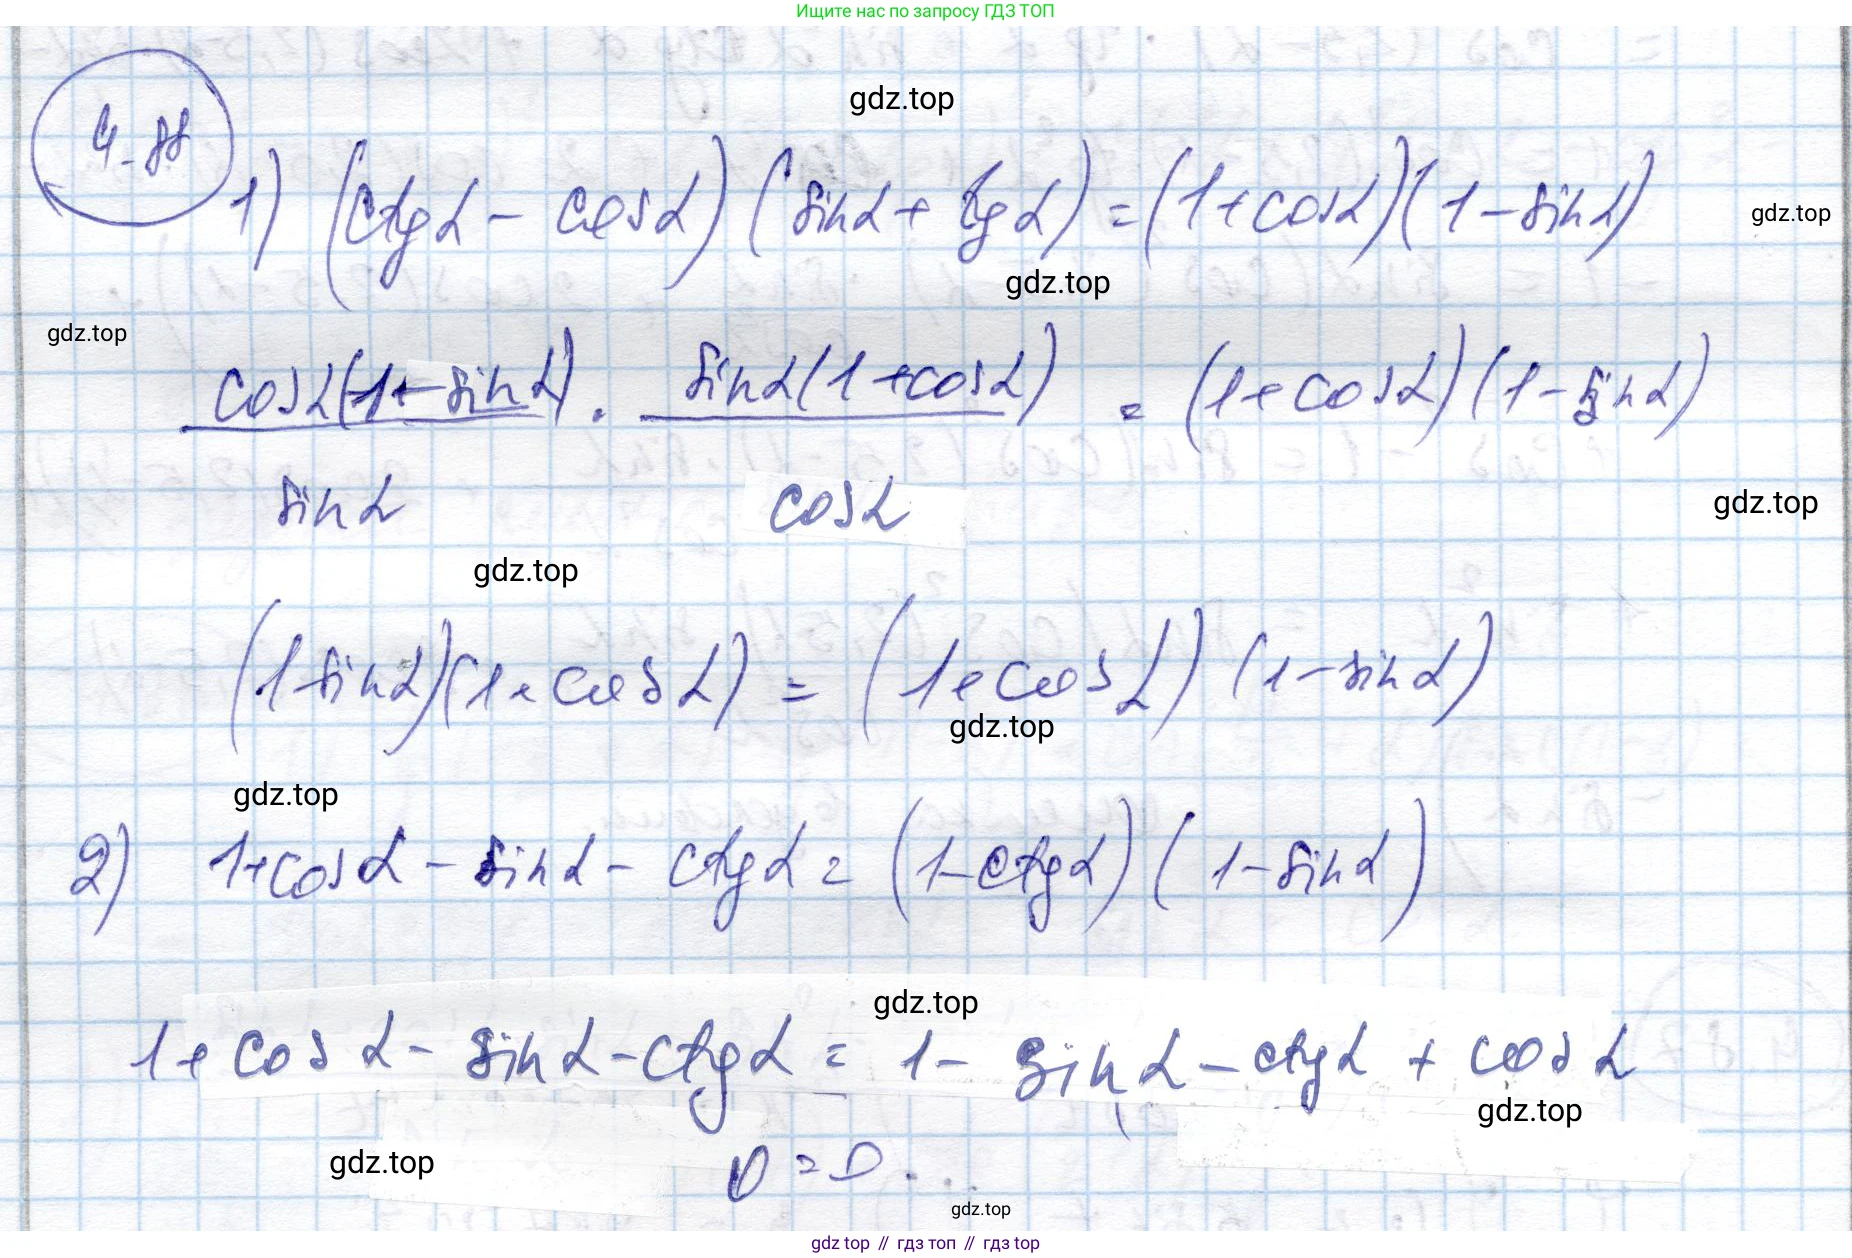 Ищите нас по запросу ГДЗ ТОП
4.88
gdz.top
1) (ctgα - cosα)(sinα + tgα) = (1+cosα)(1-sinα)
gdz.top
gdz.top
gdz.top
cosα(1-sinα) · sinα(1+cosα) = (1+cosα)(1-sinα)
sinα cosα
gdz.top
gdz.top
(1-sinα)(1+cosα) = (1+cosα)(1-sinα)
gdz.top
gdz.top
2) 1+cosα - sinα - ctgα = (1-ctgα)(1-sinα)
gdz.top
1+cosα - sinα - ctgα = 1 - sinα - ctgα + cosα
gdz.top
gdz.top
0=0.
gdz.top
gdz top // гдз топ // гдз top